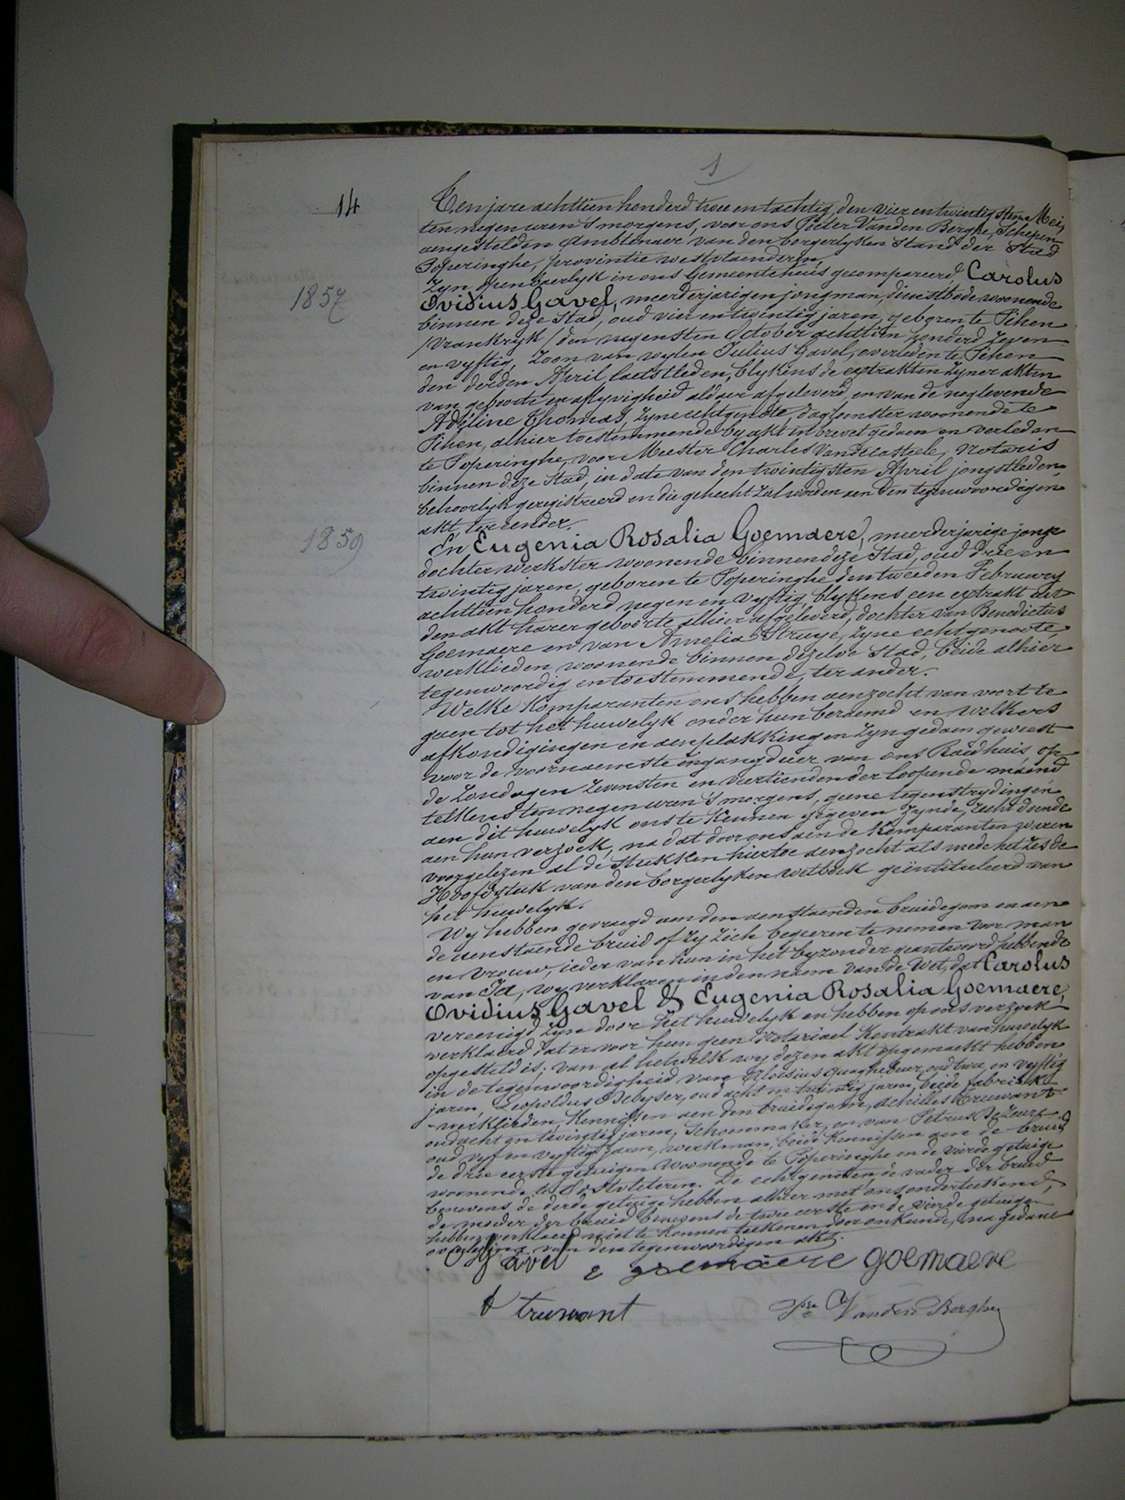 1
14
Ten jare achttien honderd twee en tachtig, den vier en twintigsten Mei,
ten negen uren 's morgens, voor ons Pieter Vanden Berghe, Schepen
aengestelden Ambtenaer van den borgerlyken Stand der Stad
Poperinghe, provintie westvlaenderen,
Zyn openbaerlyk in ons Gemeentehuis gecompareerd Carolus
1857
Ovidius Gavel, meerderjarigen jongman, dienstbode woonende
binnen deze Stad, oud vier en twintig jaren, geboren te Tihen
/Vrankryk/ den negensten October achttien honderd zeven
en vyftig, Zoon van wylen Julius Gavel, overleden te Tihen
den derden April laetstleden, blykens de extrakten zyner akten
van geboorte en aflyvigheid aldaer afgeleverd, en van de naglevende
Adeline Thomas, zyne echtgenote, dagloonster woonende te
Tihen, alhier toestemmende by akt in brevet gedaen en verleden
te Poperinghe, voor Meester Charles Vandecasteele, Notaris
binnen deze Stad, in date van den twintigsten April jongstleden,
behoorlyk geregistreerd en die gehecht zal worden aen den tegenwoordigen
akt, ter eender.
1859
En Eugenia Rosalia Goemaere, meerderjarige jonge
dochter, werkster woonende binnen deze Stad, oud drie en
twintig jaren, geboren te Poperinghe den tweeden February
achttien honderd negen en vyftig, blykens een extrakt uit
den akt harer geboorte alhier afgeleverd, dochter van Benedictus
Goemaere en van Amelia Struye, zyne echtgenoote,
werklieden woonende binnen dezelve Stad, beide alhier
tegenwoordig en toestemmende, ter ander.
Welke Komparanten ons hebben aenzocht van voort te
gaen tot het huwelyk onder hun beraemd en welkers
afkondigingen en aenplakkingen zyn gedaen geweest
voor de voornaemste ingangdeur van ons Raedhuis op
de Zondagen zevensten en veertienden der loopende maend
telkens ten negen uren 's morgens, geene tegenstrydingen
aen dit huwelyk ons te kennen gegeven zynde, recht doende
aen hun verzoek, na dat door ons aen de Komparanten waren
voorgelezen al de Stukken hiertoe aenzocht als mede het zesde
Hoofdstuk van den borgerlyken wetboek geïntituleerd van
het huwelyk.
Wy hebben gevraegd aen den aenstaenden bruidegom en aen
de aenstaende bruid of zy zich begeeren te nemen voor man
en vrouw, ieder van hun in het byzonder geantwoord hebbende
van Ja, wy verklaren in den naem van de Wet, dat Carolus
Ovidius Gavel & Eugenia Rosalia Goemaere,
vereenigd zyn door het huwelyk en hebben op ons verzoek
verklaerd dat er voor hun geen Notariael Kontrakt van huwelyk
opgesteld is; van al hetwelk wy dezen akt opgemaekt hebben
in de tegenwoordigheid van Aloïsius Quaghebeur, oud twee en vyftig
jaren, Leopoldus Debyser, oud acht en twintig jaren, beide fabriek
-werklieden, Kennissen aen den bruidegom, Achilles Truwant
oud acht en twintig jaren, Schoenmaker, en van Petrus Dezeure
oud vyf en vyftig jaren, werkman, beide Kennissen aen de bruid
de drie eerste getuigen woonende te Poperinghe en de vierde getuige
woonende te Oostvleteren. De echtgenoten, de vader der bruid
benevens de derde getuige hebben alhier met ons onderteekend,
de moeder der bruid benevens de twee eerste en de vierde getuigen
hebben verklaerd niet te konnen teekenen door onkunde, na gedane
voorlezing van den tegenwoordigen akt.
Gavel e goemaere goemaere
A truwant Pre Vanden Berghe